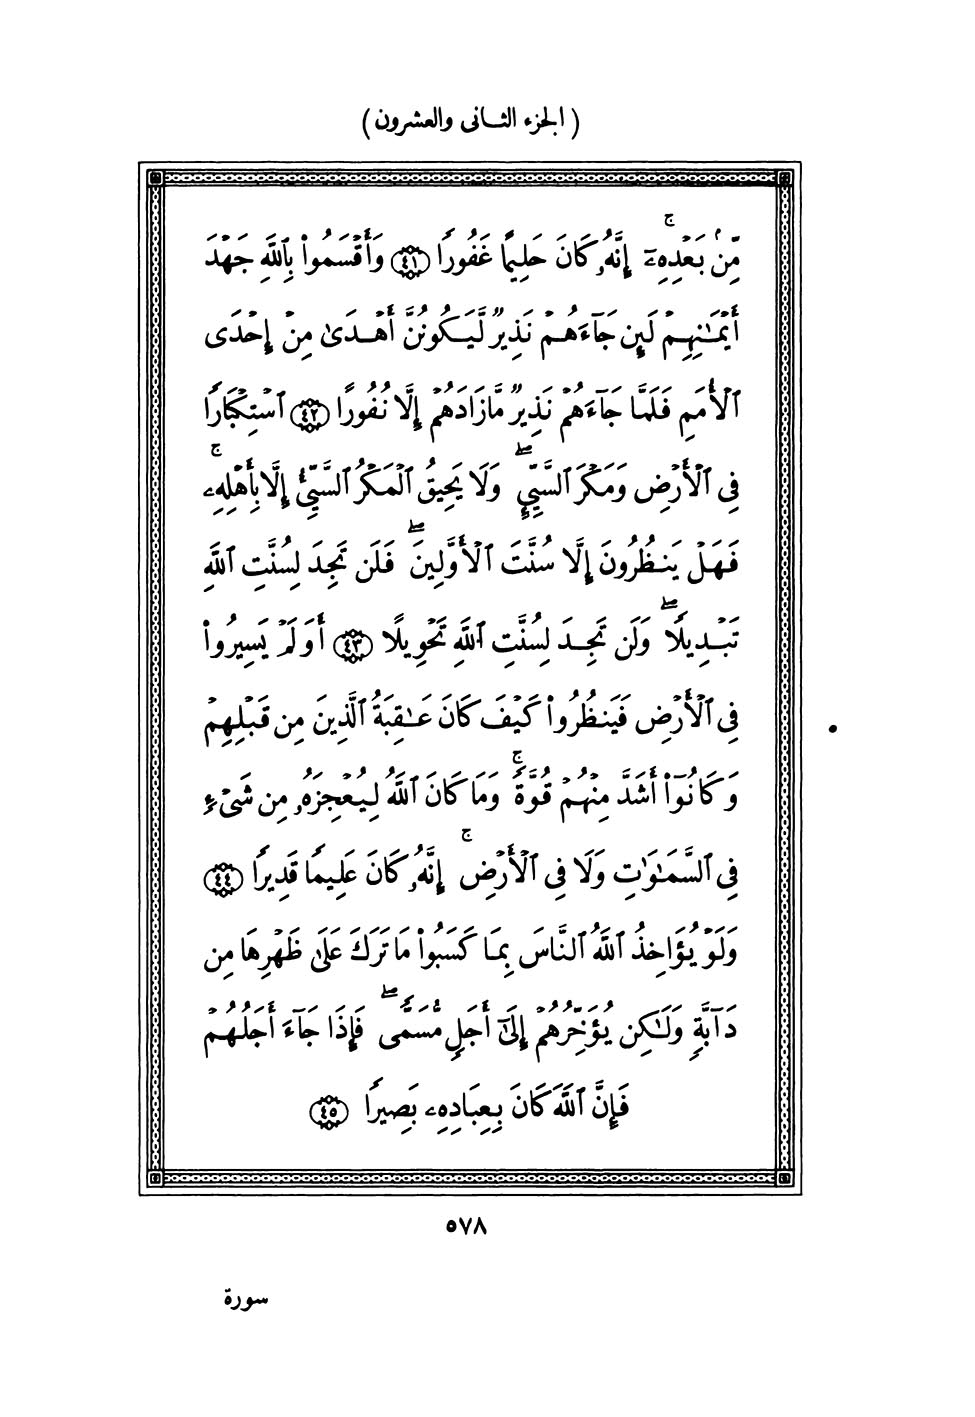 ( الجزء الثانى والعشرون )
مِّنۢ بَعۡدِهِۦٓۚ إِنَّهُۥ كَانَ حَلِيمًا غَفُورٗا ﴿٤١﴾ وَأَقۡسَمُواْ بِٱللَّهِ جَهۡدَ
أَيۡمَٰنِهِمۡ لَئِن جَآءَهُمۡ نَذِيرٞ لَّيَكُونُنَّ أَهۡدَىٰ مِنۡ إِحۡدَى
ٱلۡأُمَمِ فَلَمَّا جَآءَهُمۡ نَذِيرٞ مَّا زَادَهُمۡ إِلَّا نُفُورًا ﴿٤٢﴾ ٱسۡتِكۡبَارٗا
فِى ٱلۡأَرۡضِ وَمَكۡرَ ٱلسَّيِّيِٕۖ وَلَا يَحِيقُ ٱلۡمَكۡرُ ٱلسَّيِّئُ إِلَّا بِأَهۡلِهِۦۚ
فَهَلۡ يَنظُرُونَ إِلَّا سُنَّتَ ٱلۡأَوَّلِينَۖ فَلَن تَجِدَ لِسُنَّتِ ٱللَّهِ
تَبۡدِيلٗاۖ وَلَن تَجِدَ لِسُنَّتِ ٱللَّهِ تَحۡوِيلًا ﴿٤٣﴾ أَوَلَمۡ يَسِيرُواْ
فِى ٱلۡأَرۡضِ فَيَنظُرُواْ كَيۡفَ كَانَ عَٰقِبَةُ ٱلَّذِينَ مِن قَبۡلِهِمۡ
وَكَانُوٓاْ أَشَدَّ مِنۡهُمۡ قُوَّةٗۚ وَمَا كَانَ ٱللَّهُ لِيُعۡجِزَهُۥ مِن شَىۡءٖ
فِى ٱلسَّمَٰوَٰتِ وَلَا فِى ٱلۡأَرۡضِۚ إِنَّهُۥ كَانَ عَلِيمٗا قَدِيرٗا ﴿٤٤﴾
وَلَوۡ يُؤَاخِذُ ٱللَّهُ ٱلنَّاسَ بِمَا كَسَبُواْ مَا تَرَكَ عَلَىٰ ظَهۡرِهَا مِن
دَآبَّةٖ وَلَٰكِن يُؤَخِّرُهُمۡ إِلَىٰٓ أَجَلٖ مُّسَمّٗىۖ فَإِذَا جَآءَ أَجَلُهُمۡ
فَإِنَّ ٱللَّهَ كَانَ بِعِبَادِهِۦ بَصِيرَۢا ﴿٤٥﴾
٥٧٨
سورة